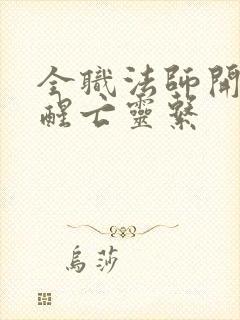 全職法師開
醒亡靈繫
烏莎